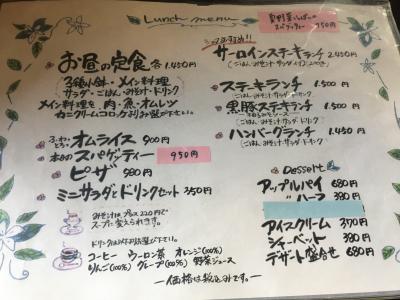 Lunch menu
夏野菜とベーコンの
スパゲッティー 950円
お昼の定食 各1,450円
3種小鉢・メイン料理
サラダ・ごはん・みそ汁・ドリンク
メイン料理を 肉・魚・オムレツ
カニクリームコロッケよりお選び下さい。
ふわとろ オムライス 900円
本日の スパゲッティー 950円
ピザ 980円
ミニサラダとドリンクセット 350円
みそ汁はプラス220円で
スープに変えられます。
ドリンクは以下よりお選び下さい。
コーヒー ウーロン茶 オレンジ(100%)
りんご(100%) グレープ(100%) 野菜ジュース
シェフおすすめ!!
サーロインステーキランチ 2,450円
ステーキランチ 1,850円
ごはん、みそ汁・サラダ・ドリンク
黒豚ステーキランチ 1,450円
ごはん、みそ汁・サラダ・ドリンク
ハンバーグランチ 1,450円
ごはん、みそ汁・サラダ・ドリンク
Dessert
アップルパイ 680円
〃 ハーフ 380円
アイスクリーム 390円
シャーベット 380円
デザート盛合せ 680円
―価格は税込みです。―